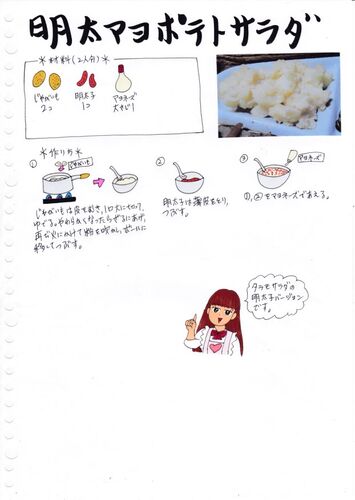 明太マヨポテトサラダ
*材料(2人分)*
じゃがいも 明太子 マヨネーズ
2コ 1コ 大さじ1
*作り方*
① じゃがいも
じゃがいもは皮をむき、1口大に切って、
ゆでる。やわらかくなったらざるにあげ、
再び火にかけて粉を吹かし、ボールに
移してつぶす。
②
明太子は薄皮をとり、
つぶす。
③ マヨネーズ
①、②をマヨネーズであえる。
タラモサラダの
明太子バージョン
です。